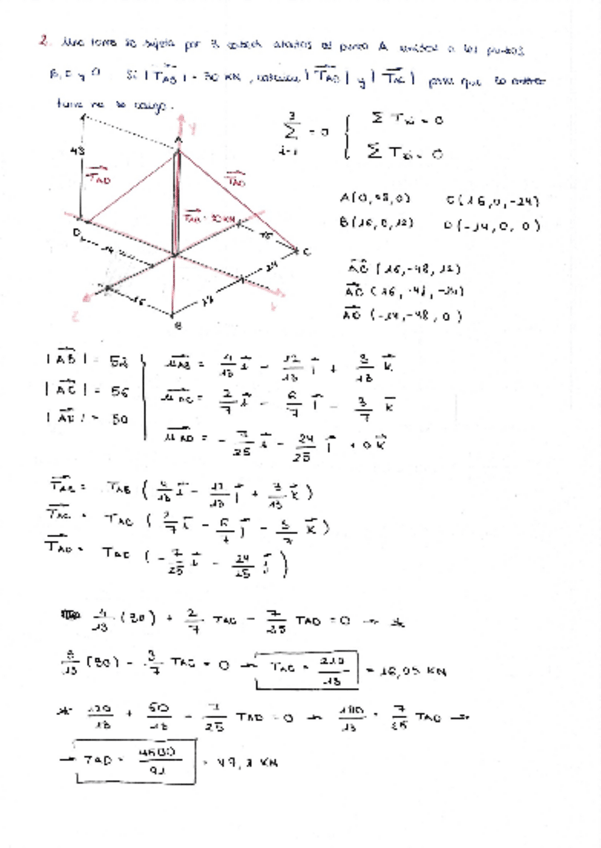 2. Una torre se sujeta por 3 cables atados al punto A unidos a los puntos
B, C y D. Si |T_AB| = 30 KN, calcular |T_AD| y |T_AC| para que la
torre no se caiga.
Y
48
T_AD
D
14
16
B
24
24
C
Σ = 0 { Σ T = 0
Σ T = 0
A(0,48,0) C(16,0,-24)
B(16,0,12) D(-14,0,0)
(16,-48,12)
(16,-48,-24)
AD (-14,-48,0)
|AB| = 52
|AC| = 56
|AD| = 50
μ_AB = 4/13 i - 12/13 j + 3/13 k
μ_AC = 2/7 i - 6/7 j - 3/7 k
μ_AD = - 7/25 i - 24/25 j + 0k
= T_AB (4/13 i - 12/13 j + 3/13 k)
T_AC = T_AC (2/7 i - 6/7 j - 3/7 k)
T_AD = (-7/25 i - 24/25 j)
4/13 · (30) + 2/7 T_AC - 7/25 T_AD = 0 → *
3/13 (30) - 3/7 T_AC = 0 → T_AC = 210/13 = KN
* 120/13 + 60/13 - 7/25 T_AD = 0 → 180/13 = 7/25 T_AD →
→ T_AD = 4500/91 = KN